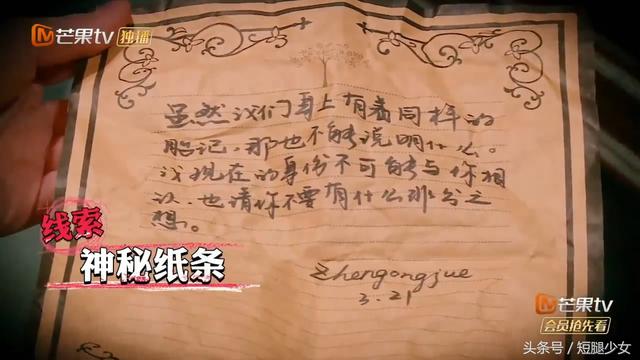 芒果tv 独播
虽然我们身上有着同样的
胎记，那也不能说明什么。
我现在的身份不可能与你相
认，也请你不要有什么非分之
想。
Zhengongjue
3.21
线索
神秘纸条
芒果tv
会员抢先看
头条号 / 短腿少女